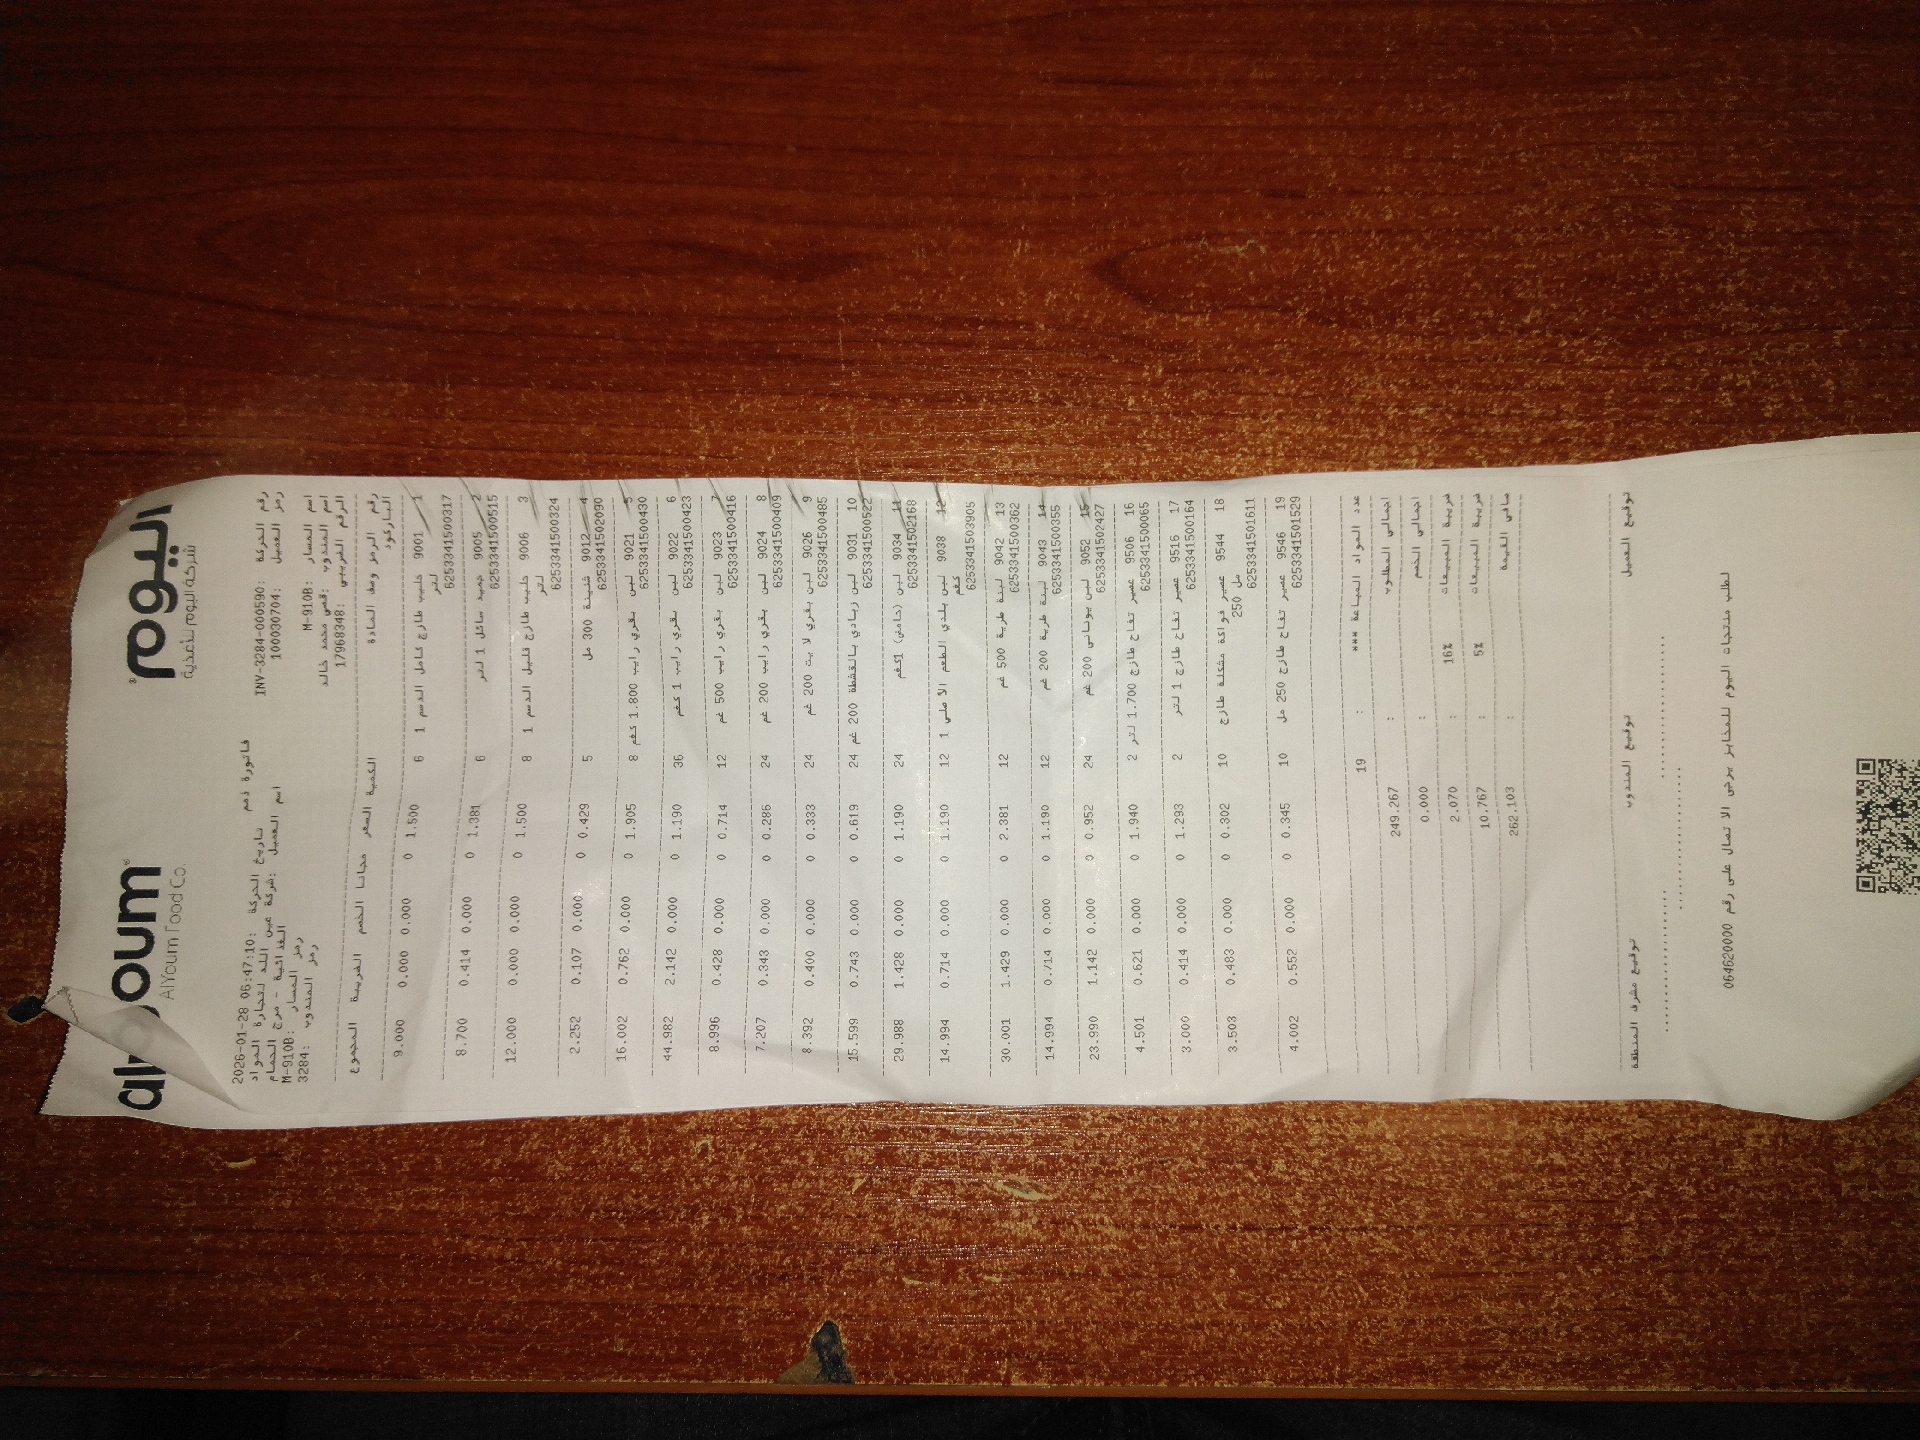 اليوم
شركة اليوم للأغذية
oum
AlYoum Food Co.
فاتورة ذمم
رقم الحركة: INV-3284-000590 تاريخ الحركة: 2026-01-28 06:47:10
رمز العميل: 100030704 اسم العميل: شركة عين اللد لتجارة المواد
الغذائية - مرج الحمام
اسم المسار: M-910B رمز المسار: M-910B
اسم المندوب: قصي محمد خالد رمز المندوب: 3284
الرقم الضريبي: 17968348
رقم الرمز وصف المادة الكمية السعر مجانا الخصم الضريبة المجموع
الباركود
1 9001 حليب طازج كامل الدسم 1 6 1.500 0 0.000 0.000 9.000
لتر
6253341500317
2 9005 جميد سائل 1 لتر 6 1.381 0 0.000 0.414 8.700
6253341500515
3 9006 حليب طازج قليل الدسم 1 8 1.500 0 0.000 0.000 12.000
لتر
6253341500324
4 9012 شنينة 300 مل 5 0.429 0 0.000 0.107 2.252
6253341502090
5 9021 لبن بقري رايب 1.800 كغم 8 1.905 0 0.000 0.762 16.002
6253341500430
6 9022 لبن بقري رايب 1 كغم 36 1.190 0 0.000 2.142 44.982
6253341500423
7 9023 لبن بقري رايب 500 غم 12 0.714 0 0.000 0.428 8.996
6253341500416
8 9024 لبن بقري رايب 200 غم 24 0.286 0 0.000 0.343 7.207
6253341500409
9 9026 لبن بقري لايت 200 غم 24 0.333 0 0.000 0.400 8.392
6253341500485
10 9031 لبن زبادي بالقشطة 200 غم 24 0.619 0 0.000 0.743 15.599
6253341500522
11 9034 لبن (حامض) 1كغم 24 1.190 0 0.000 1.428 29.988
6253341502168
12 9038 لبن بلدي الطعم الأصلي 1 12 1.190 0 0.000 0.714 14.994
كغم
6253341503905
13 9042 لبنة طرية 500 غم 12 2.381 0 0.000 1.429 30.001
6253341500362
14 9043 لبنة طرية 200 غم 12 1.190 0 0.000 0.714 14.994
6253341500355
15 9052 لبن يوناني 200 غم 24 0.952 0 0.000 1.142 23.990
6253341502427
16 9506 عصير تفاح طازج 1.700 لتر 2 1.940 0 0.000 0.621 4.501
6253341500065
17 9516 عصير تفاح طازج 1 لتر 2 1.293 0 0.000 0.414 3.000
6253341500164
18 9544 عصير فواكة مشكلة طازج 10 0.302 0 0.000 0.483 3.503
250 مل
6253341501611
19 9546 عصير تفاح طازج 250 مل 10 0.345 0 0.000 0.552 4.002
6253341501529
عدد المواد المباعة *** : 19
اجمالي المطلوب : 249.267
اجمالي الخصم : 0.000
ضريبة المبيعات 16% : 2.070
ضريبة المبيعات 5% : 10.767
صافي القيمة : 262.103
توقيع العميل توقيع المندوب توقيع مشرف المنطقة
لطلب منتجات اليوم للمخابز يرجى الاتصال على رقم 064620000